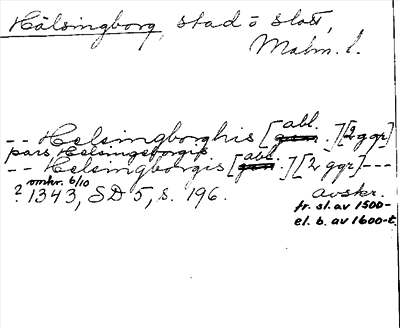 Hälsingborg, stad o slott,
Malm. l.
-- Helsingborghis [abl. gen.] [2 ggr]
pars Helsingeborgis
-- Helsingborgis [abl. gen.] [2 ggr] ---
omkr. 6/10
? 1343, SD 5, s. 196.
avskr.
fr. sl. av 1500-
el. b. av 1600-t.